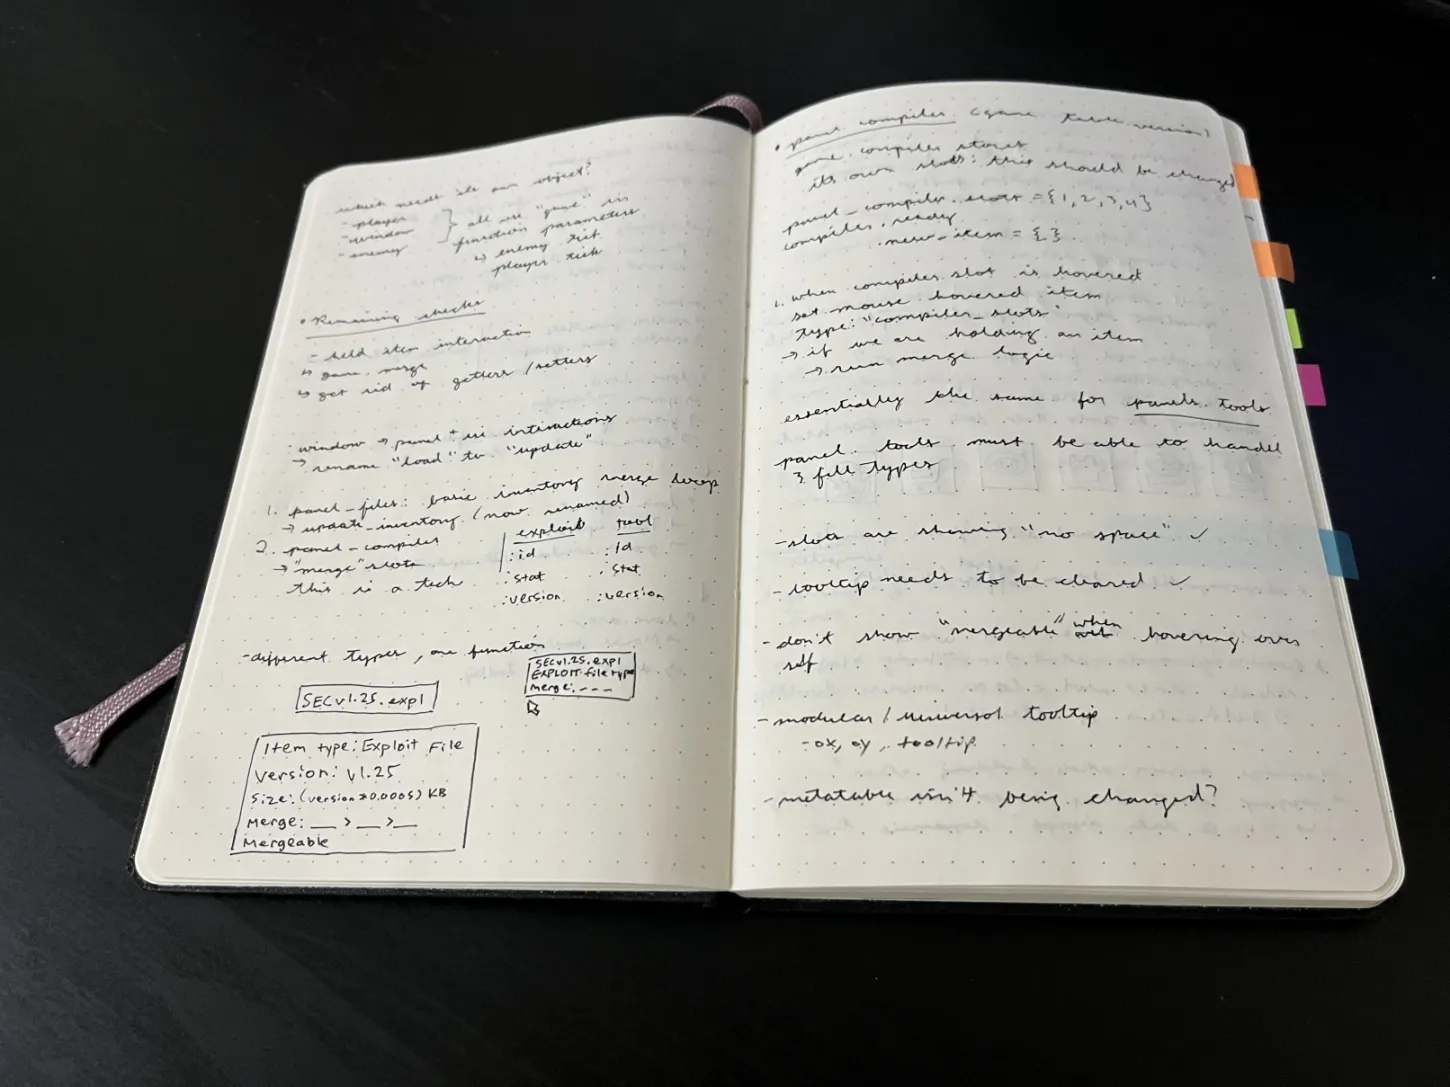 which needs its own object?
- player
- window
- enemy
} all use "game" in
function parameters
↳ enemy tick
player tick
• Remaining checks
- held item interaction
↳ game. merge
↳ get rid of getters / setters
- window → panel + ui intiractions
→ rename "load" to "update"
1. panel_files: basic inventory merge
→ update_inventory (now renamed)
2. panel-compiler
→ "merge" slots
this is a tech
exploit tool
:id :id
:stat :stat
:version :version
- different types, are function
SECv1.25.expl
SECv1.25.expl
EXPLOIT file type
merge: _ _ _
Item type: Exploit File
Version: v1.25
Size: (version*0.0005) KB
Merge: __ > __ > __
Mergeable
• panel. compiler (game version)
game. compiler stores
its own slots: this should be changed
panel_compiler. slots = {1, 2, 3, 4}
compiler. ready
.new_item = {}
1. when compiler slot is hovered
set mouse hovered item
type: "compiler_slots"
→ if we are holding an item
→ run merge logic
essentially the same for panels. tools
panel. tools must be able to handel
3 full types
- slots are showing "no space" ✓
- tooltip needs to be cleared ✓
- don't show "mergeable" when hovering over
self
- modular / universal tooltip
- ox, oy, tooltip
- metatable isn't being changed?